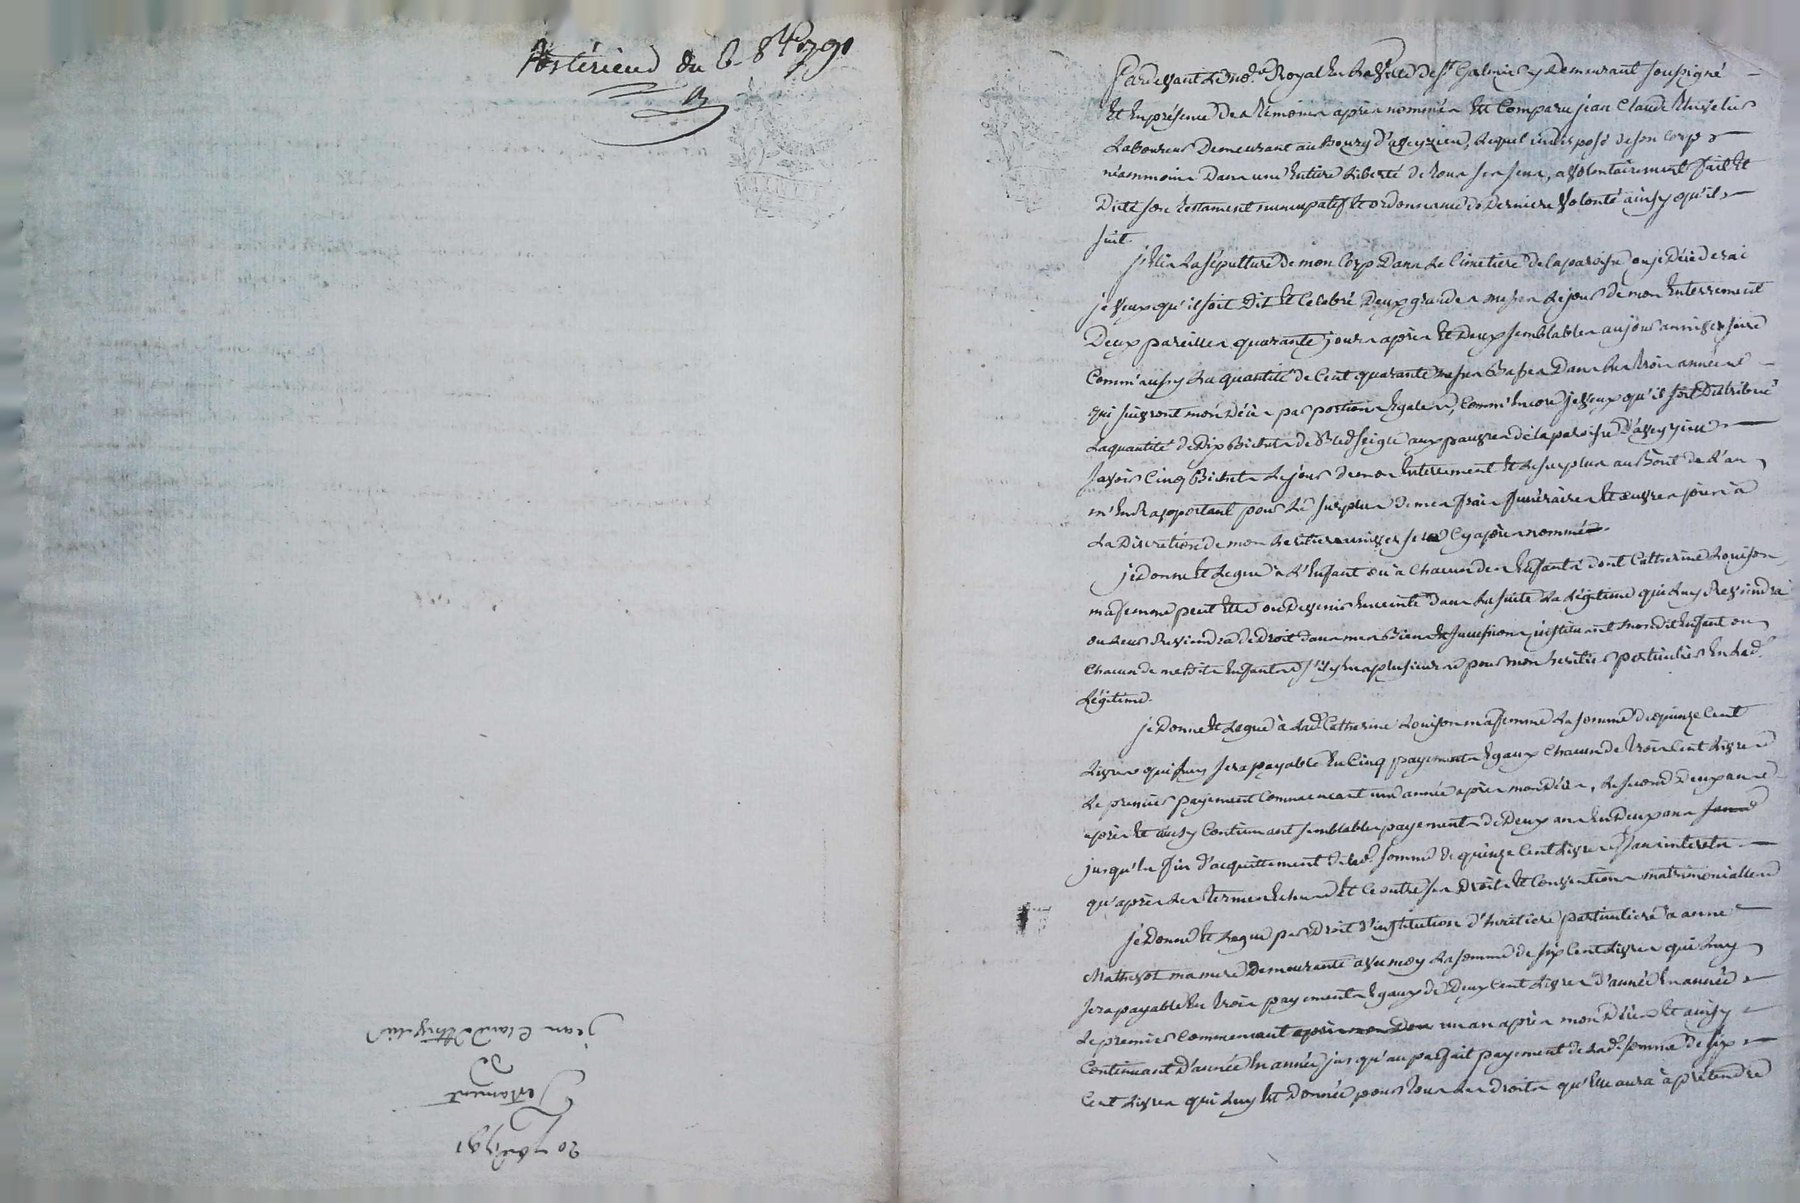 Postérieur du 6 8bre 1791
20 7bre 1791
Testament
de
jean Claude
Pardevant le no.re Royal en la Ville de St Galmier y Demeurant soussigné
Et En présence des témoins apres nommés Est Comparu jean Claude
Laboureur Demeurant au Bourg d'aveyzieu, Lequel indisposé de son Corps
néammoins Dans une Entiere Liberté de tous ses sens, a Volontairement fait Et
Dicté son testament nuncupatif Et ordonnance de Derniere Volonté ainsy qu'il
suit.
j'Elis La sépulture de mon Corps Dans Le Cimetiere de la paroisse ou je Décéderai
je Veux qu'il soit Dit Et Célébré Deux grandes messes Le jour de mon Enterrement
Deux pareilles quarante jours après Et Deux semblables au jour anniversaire
Comm'aussy La quantité de Cent quarante messes Basses Dans Les trois années
qui suivront mon Décès par portions Egales, Comm'Encore je Veux qu'il soit Distribué
La quantité de Dix Bichets de Bled seigle aux pauvres de la paroisse d'aveyzieu
savoir Cinq Bichets Le jour de mon Enterrement Et Le surplus au Bout de L'an
m'En Rapportant pour Le surplus de mes frais funéraires Et œuvres pies à
La Discrétion de mon heritier universel Cy après nommé.
je Donne Et Legue à L'Enfant ou à Chacun des Enfants dont Catherine Louison
ma femme peut Etre ou Devenir Enceinte dans La suite La Légitime qui Luy Reviendra
ou Leur Reviendra de Droit dans mes Biens Et succession instituant mondit Enfant ou
Chacun de mesdits Enfants s'il y En a plusieurs pour mon heritier particulier En Lad.
Légitime.
je Donne Et Legue à Lad. Catherine Louison ma femme La somme de quinze Cent
Livres qui Luy sera payable En Cinq payements Egaux Chacun de trois Cent Livres
Le premier payement Commencant une année après mon Décès, Le second Deux ans
après Et ainsy Continuant semblables payements de Deux ans En Deux ans
jusqu'En fin d'acquittement de lad. somme de quinze Cent Livres sans interets
qu'après Les termes Echus Et Ce outre ses Droits Et Conventions matrimoniales
je Donne Et Legue par Droit d'institution d'heritiere particuliere à anne
Mathevot ma mere Demeurante avec moy La somme de six Cent Livres qui Luy
sera payable En trois payements Egaux de Deux Cent Livres d'année En année
Le premier Commencant un an après mon Décès Et ainsy
Continuant D'année En année jusqu'au parfait payement de Lad. somme de six
Cent Livres qui Luy Est Donnée pour tous Les Droits qu'Elle aura à prétendre